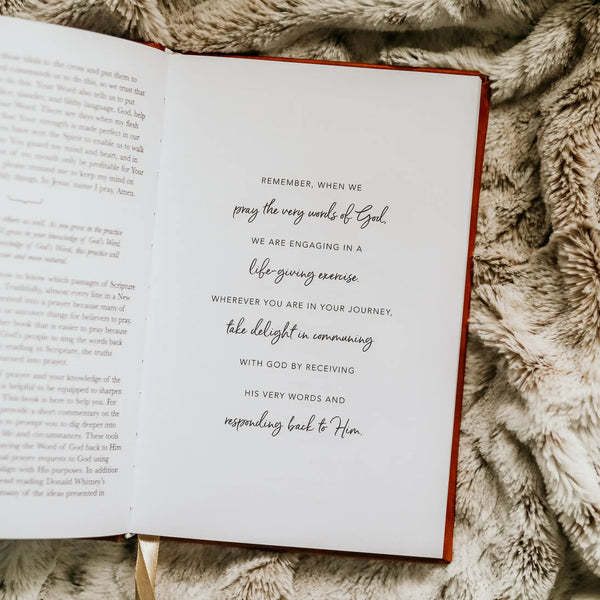 ideas to the cross and put them to
commands us to do this, so we trust that
do this. Your Word also tells us to put
, slander, and filthy language. God, help
our Word. There are days when my flesh
that Your strength is made perfect in our
have sent the Spirit to enable us to walk
You guard my mind and heart, and in
of my mouth only be profitable for Your
please remind me to keep my mind on
things. In Jesus' name I pray, Amen.
them as well. As you grow in the practice
grow in your knowledge of God's Word.
of God's Word, this practice will
and more natural.
to know which passages of Scripture
Truthfully, almost every line in a New
turned into a prayer because many of
encourage change for believers to pray.
other book that is easier to pray because
God's people to sing the words back
reading to Scripture, the truths
turned into prayer.
prayer and your knowledge of the
is helpful to be equipped to sharpen
This book is here to help you. For
provide a short commentary on the
prompt you to dig deeper into
His and circumstances. These tools
praying the Word of God back to Him
prayer requests to God using
align with His purposes. In addition
read reading Donald Whitney's
many of the ideas presented in
REMEMBER, WHEN WE
pray the very words of God,
WE ARE ENGAGING IN A
life-giving exercise.
WHEREVER YOU ARE IN YOUR JOURNEY,
take delight in communing
WITH GOD BY RECEIVING
HIS VERY WORDS AND
responding back to Him.